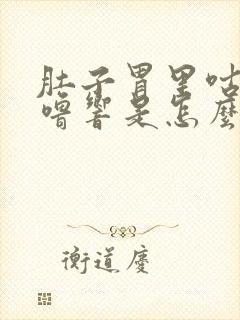 肚子胃里咕
噜響是怎麼
衡道慶